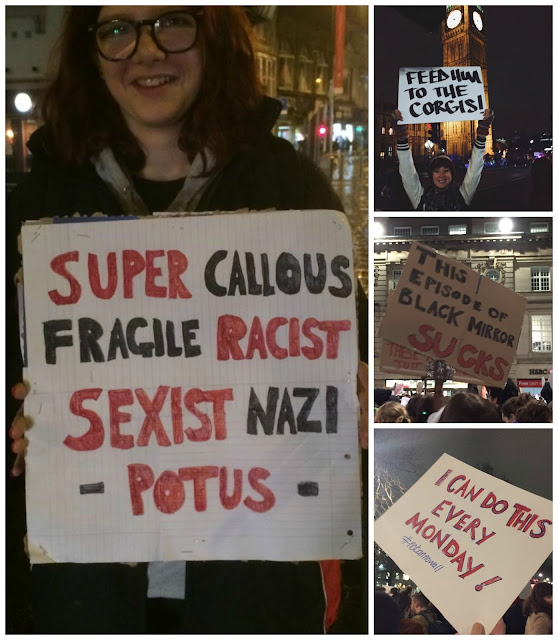 SUPER CALLOUS
FRAGILE RACIST
SEXIST NAZI
- POTUS -
FEED HIM
TO THE
CORGIS!
THIS
EPISODE OF
BLACK MIRROR
SUCKS
THESE
HSBC
I CAN DO THIS
EVERY
MONDAY!